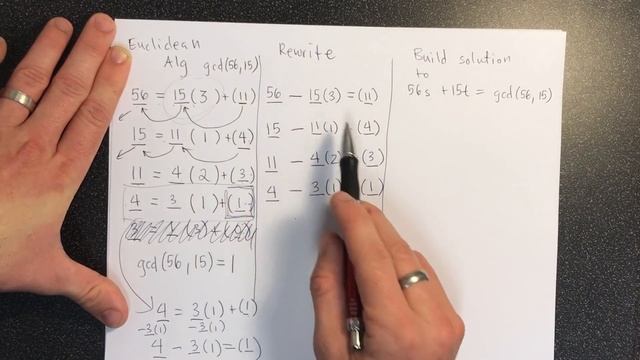 Euclidean
Alg gcd(56,15)
56 = 15(3)+(11)
15 = 11(1)+(4)
11 = 4(2)+(3)
4 = 3(1)+(1)
gcd(56,15)=1
4 = 3(1)+(1)
-3(1) -3(1)
4 - 3(1)=(1)
Rewrite
56 - 15(3) = (11)
15 - 11(1) (4)
11 - 4(2) (3)
4 - 3(1 (1)
Build solution
to
56s + 15t = gcd(56,15)